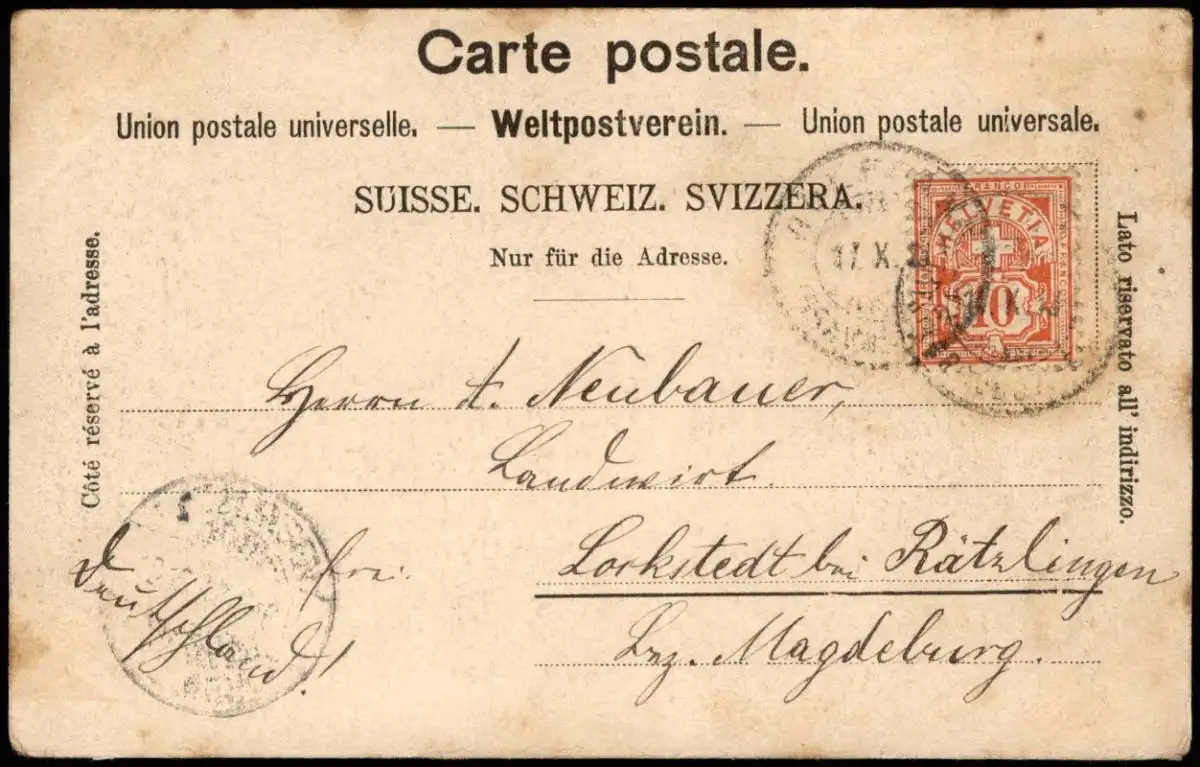 Carte postale.
Union postale universelle. — Weltpostverein. — Union postale universale.
SUISSE. SCHWEIZ. SVIZZERA.
Nur für die Adresse.
Côté réservé à l'adresse.
Lato riservato all' indirizzo.
FRANCO
HELVETIA
10
17. X.
Herrn A. Neubauer,
Landwirt
fre:
Lockstedt bei Rätzlingen
Bez. Magdeburg.
Deutschland!